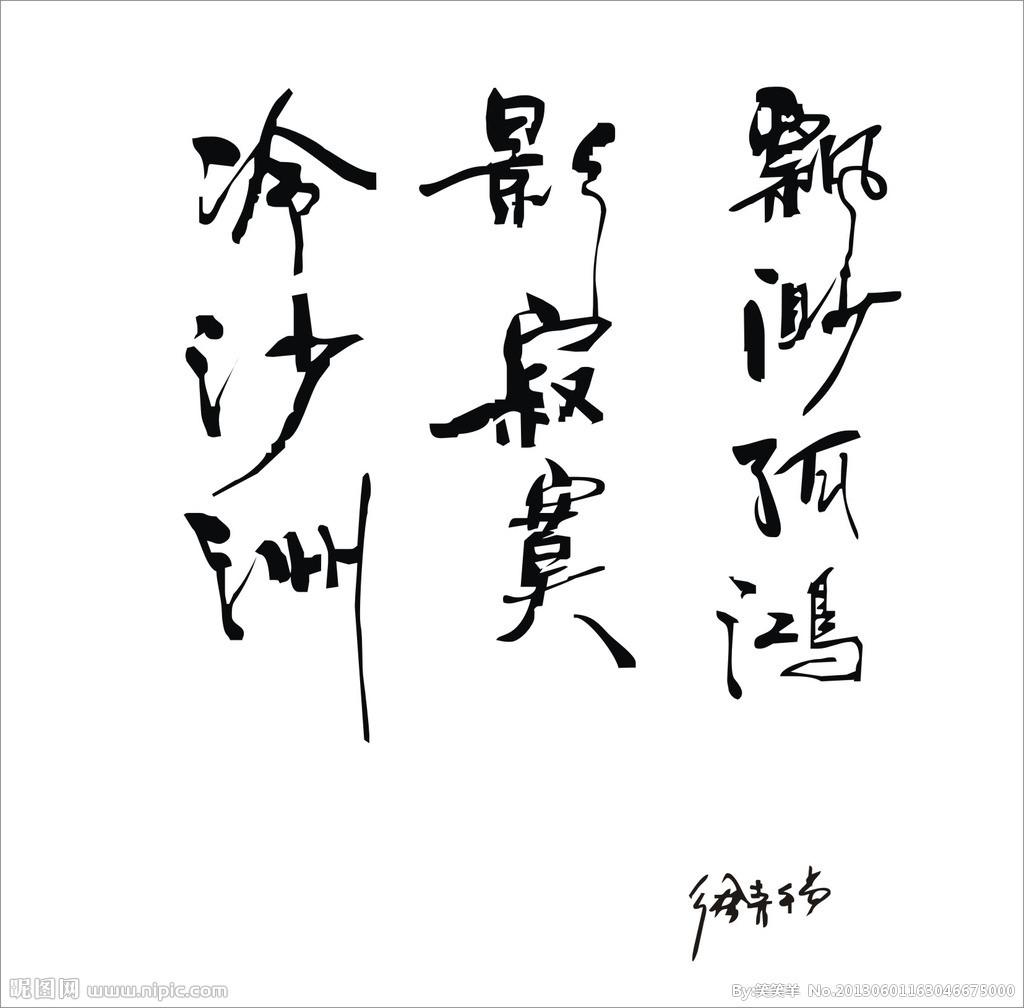 飘渺孤鸿
影寂寞
冷沙洲
昵图网 www.nipic.com
By:笑笑羊 No.20130601163046675000